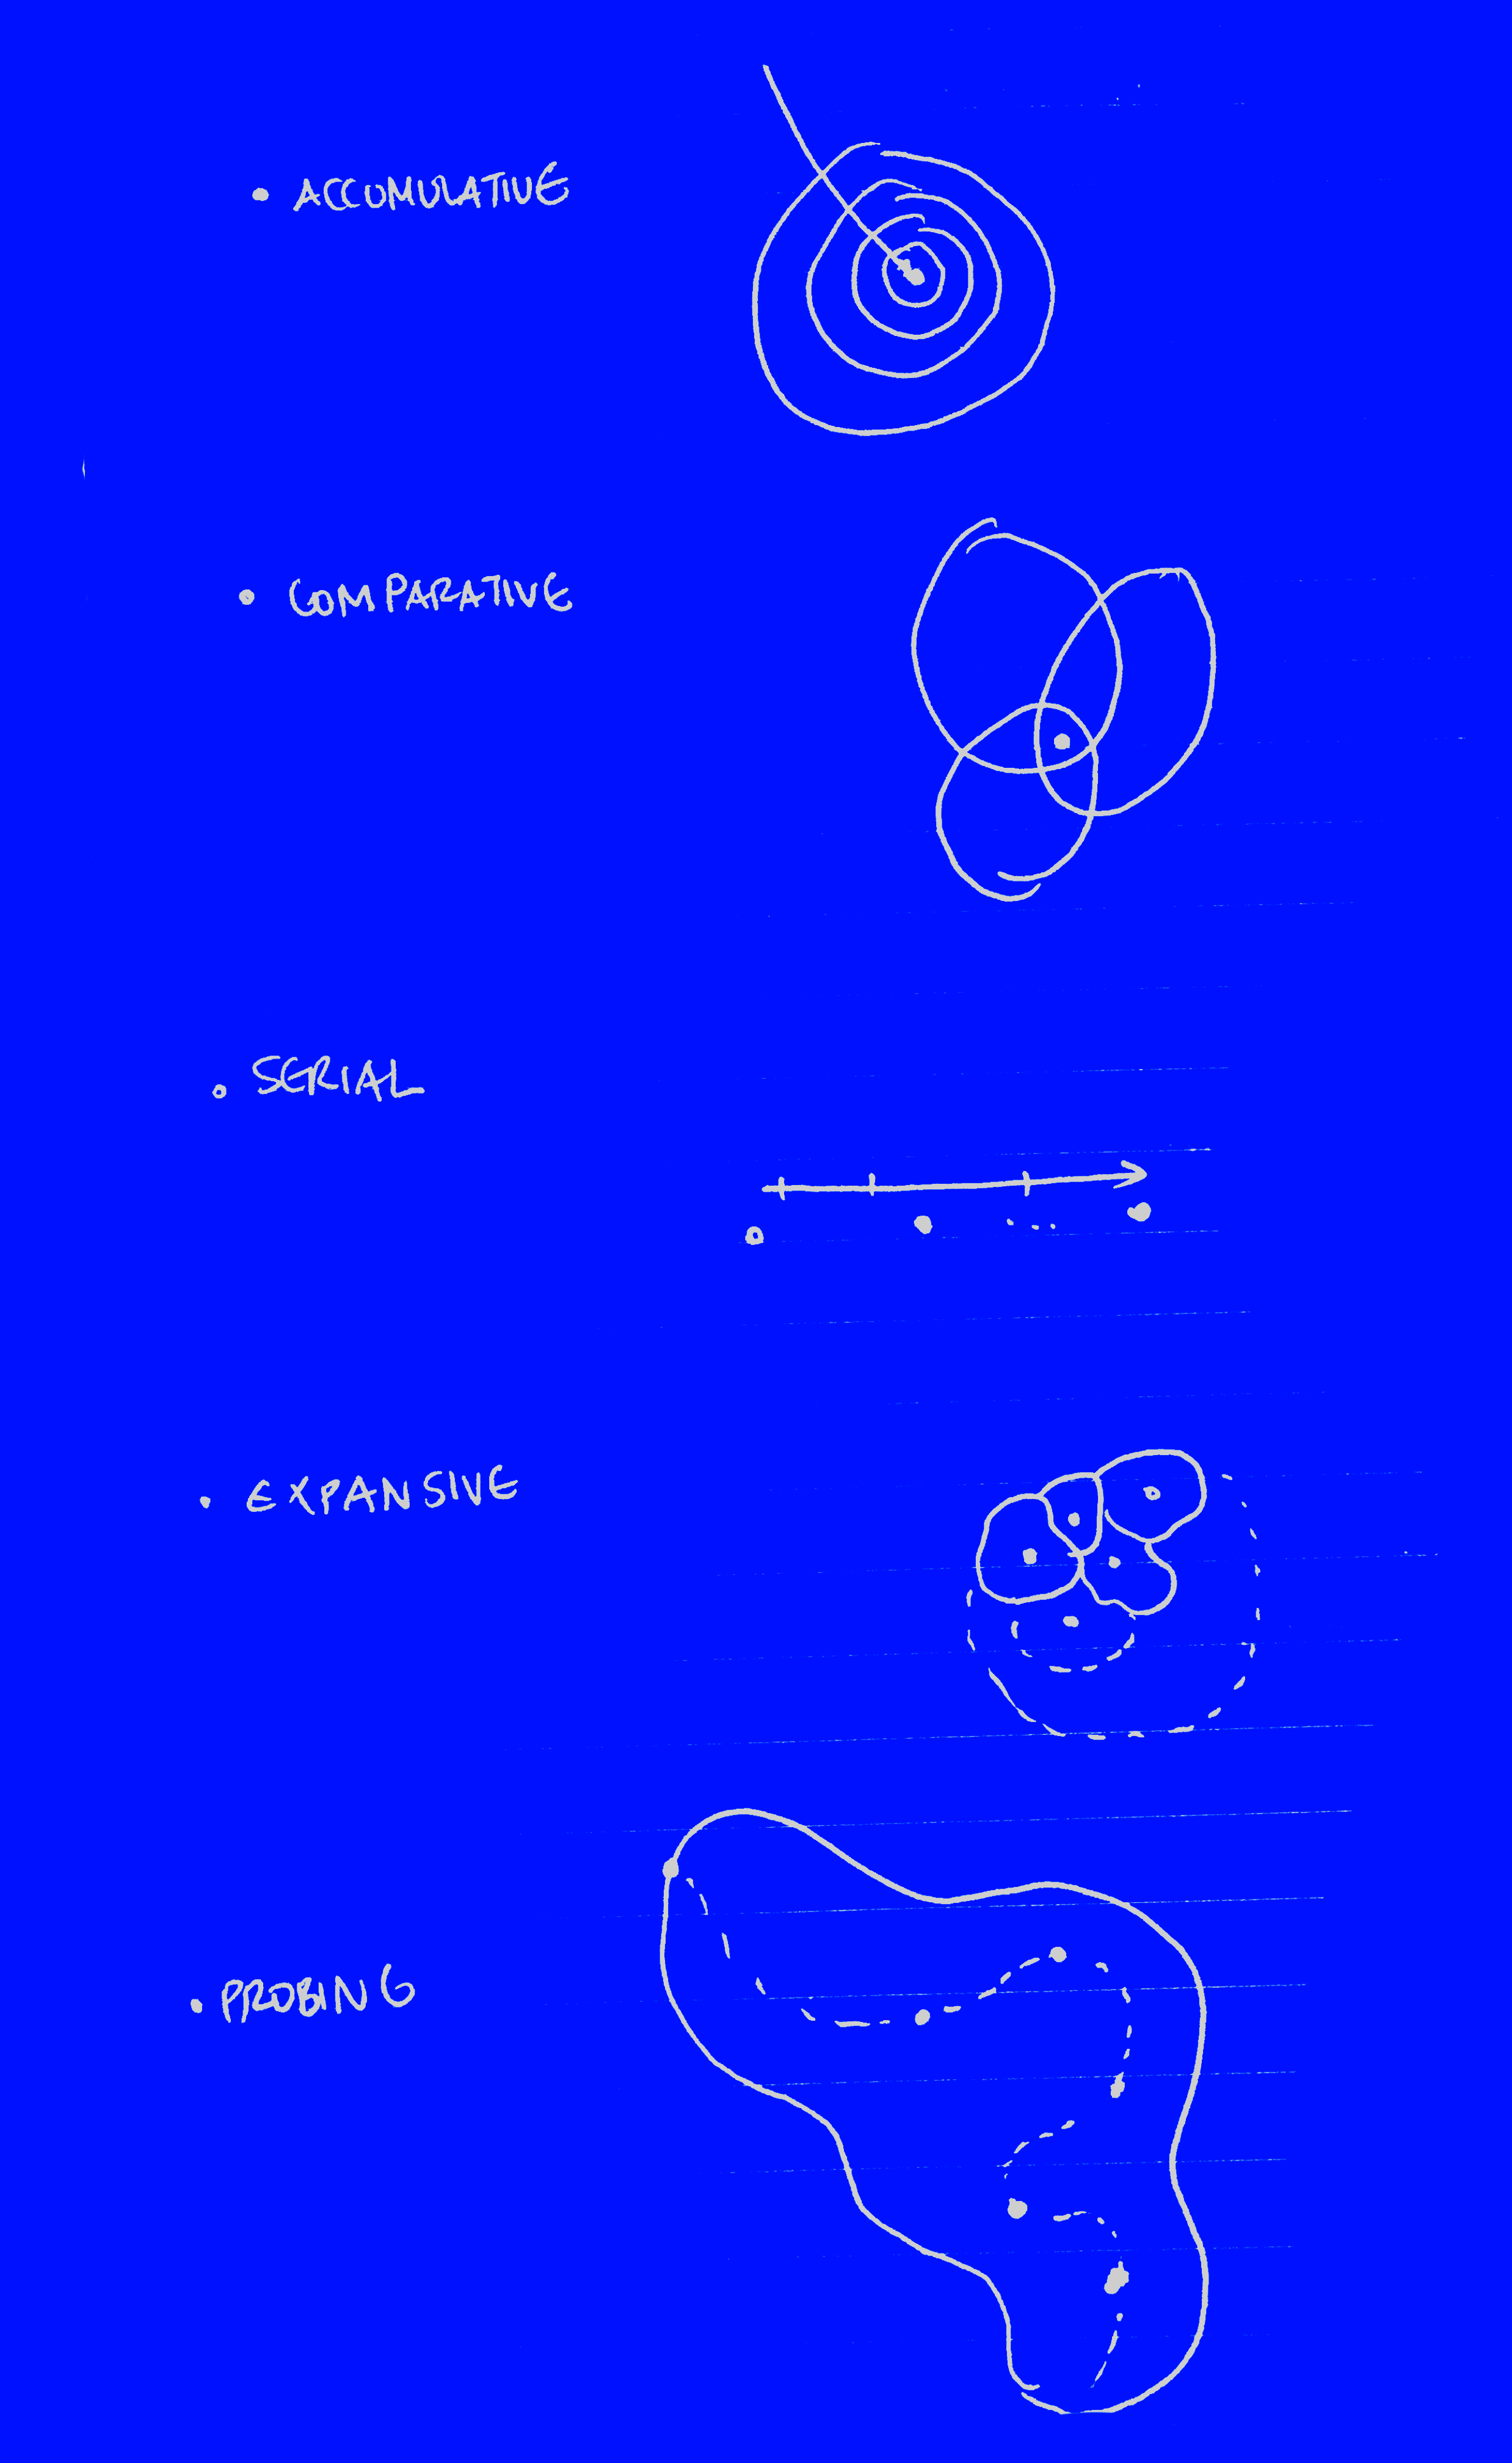 • ACCUMULATIVE
• COMPARATIVE
• SERIAL
• EXPANSIVE
• PROBING